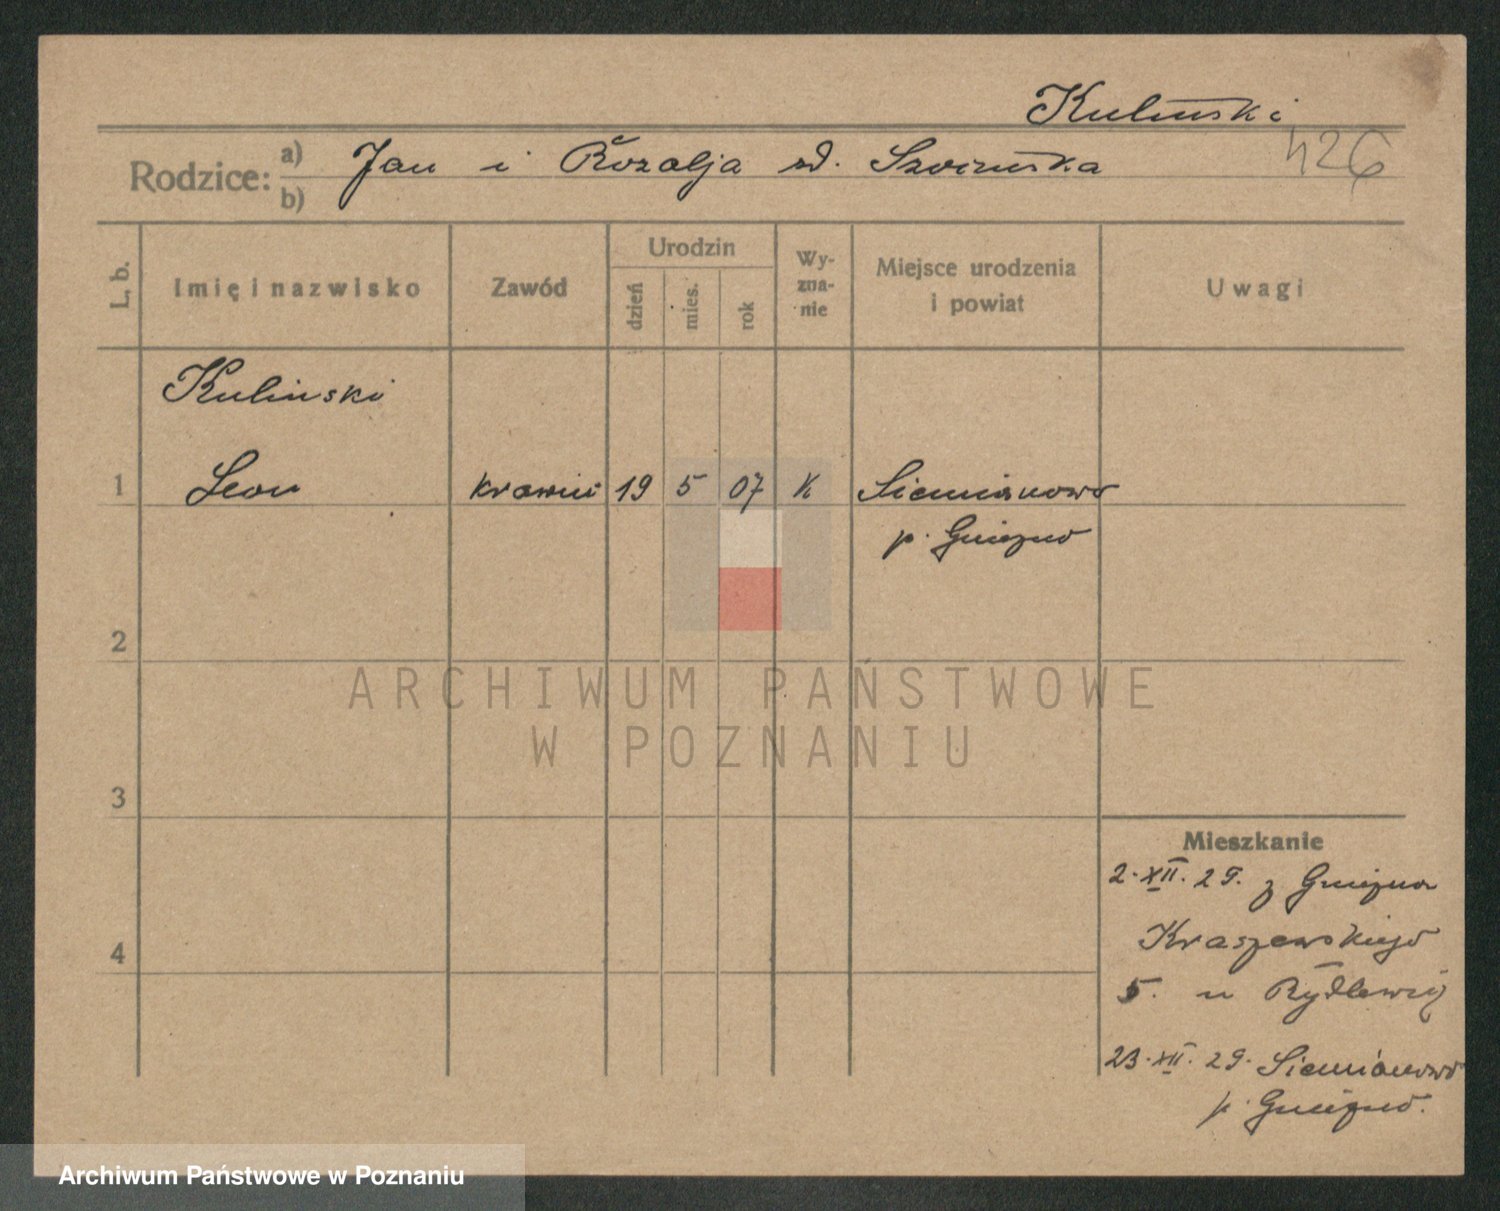 Kuliński
426
Rodzice: a) Jan i Rozalja zd.
b)
L. b.
Imię i nazwisko
Zawód
Urodzin
dzień
mies.
rok
Wy-
zna-
nie
Miejsce urodzenia
i powiat
Uwagi
Kulinski
1 Leon krawiec 19 5 07 K Siemianowo
p. Gniezno
2
3
4
Mieszkanie
2. XII. 29. z Gniezna
Kraszewskiego
5. u
23. XII. 29. Siemianowo
p. Gniezno.
ARCHIWUM PAŃSTWOWE
W POZNANIU
Archiwum Państwowe w Poznaniu